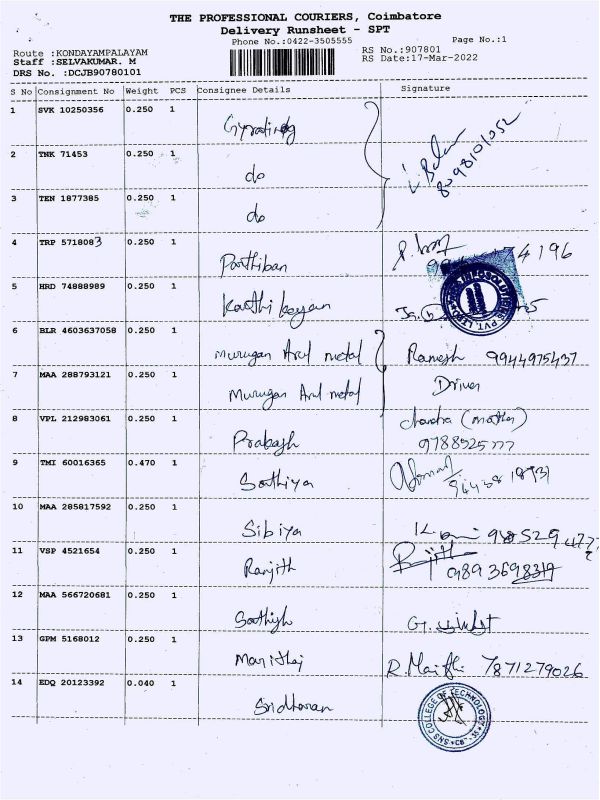 THE PROFESSIONAL COURIERS, Coimbatore
Delivery Runsheet - SPT
Phone No.:0422-3505555 Page No.:1
Route :KONDAYAMPALAYAM RS No.:907801
Staff :SELVAKUMAR. M RS Date:17-Mar-2022
DRS No. :DCJB90780101
S No Consignment No Weight PCS Consignee Details Signature
1 SVK 10250356 0.250 1
2 TNK 71453 0.250 1 do
3 TEN 1877385 0.250 1 do
4 TRP 5718083 0.250 1 Parthiban
5 HRD 74888989 0.250 1 Karthikeyan
6 BLR 4603637058 0.250 1 Murugan Arul metal Ramesh 9944975437
7 MAA 288793121 0.250 1 Murugan Arul metal Driver
8 VPL 212983061 0.250 1 Prabash chandra (mother)
9 TMI 60016365 0.470 1 Sathiya
10 MAA 285817592 0.250 1 Sibiya
11 VSP 4521654 0.250 1 Ranjith
12 MAA 566720681 0.250 1 Sathish
13 GPM 5168012 0.250 1 7871279026
14 EDQ 20123392 0.040 1 Sridharan
SNS COLLEGE OF TECHNOLOGY